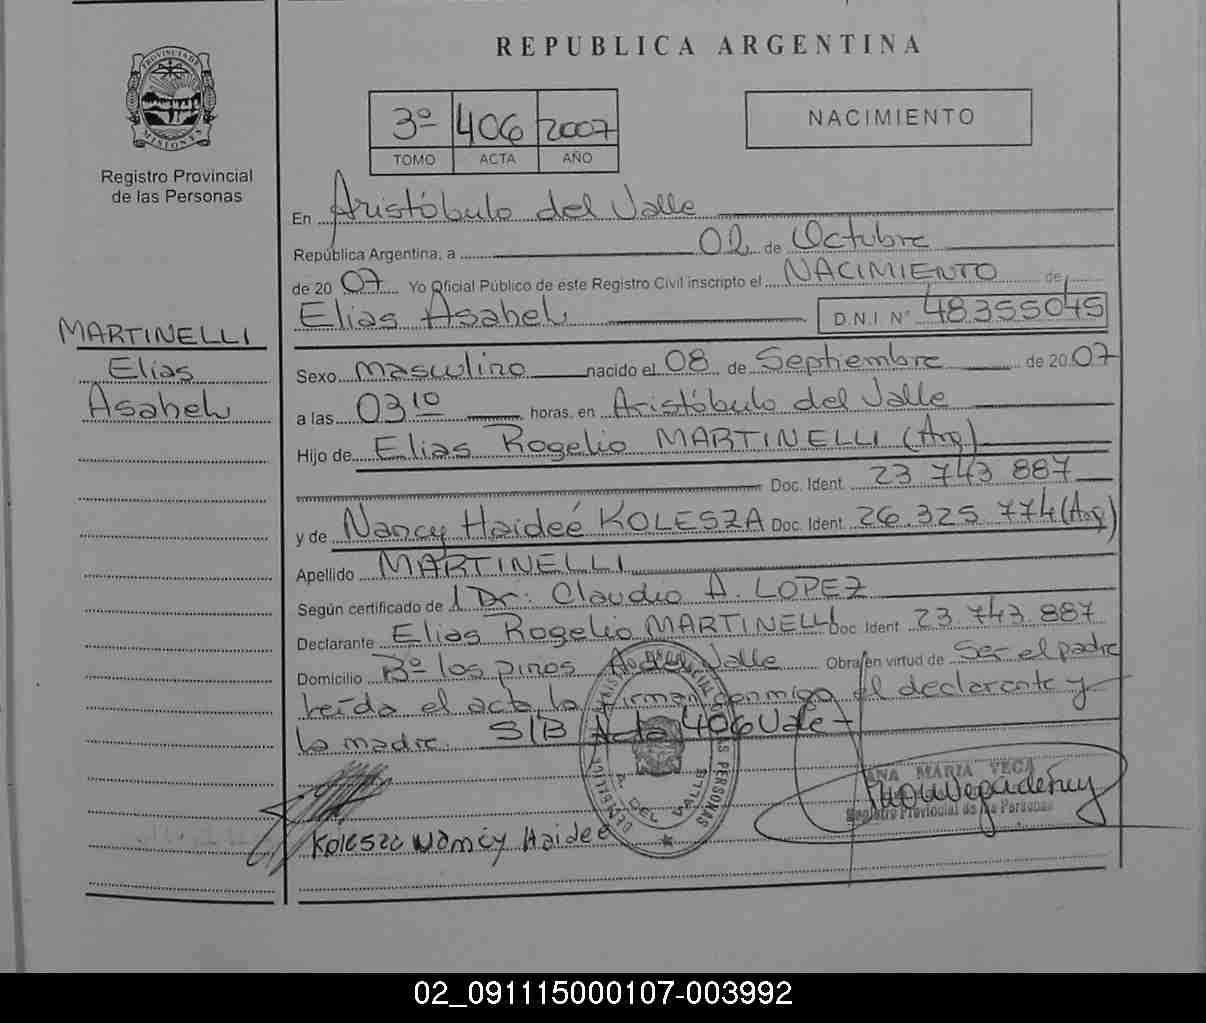 PROVINCIA DE
MISIONES
Registro Provincial
de las Personas
MARTINELLI
Elias
Asabel
REPUBLICA ARGENTINA
3º 406 2007
TOMO ACTA AÑO
NACIMIENTO
En Aristóbulo del Valle
República Argentina, a 02 de Octubre
de 20 07 Yo Oficial Público de este Registro Civil inscripto el NACIMIENTO de
Elias Asabel D.N.I Nº 48.355045
Sexo masculino nacido el 08 de Septiembre de 20 07
a las 03 10 horas, en Aristóbulo del Valle
Hijo de Elias Rogelio MARTINELLI (Arg)
Doc. Ident. 23 743 887
y de Nancy Haideé KOLESZA Doc. Ident. 26.325 774 (Arg)
Apellido MARTINELLI
Según certificado de Dr. Claudio A. LOPEZ
Declarante Elias Rogelio MARTINELLI Doc Ident 23.743.887
Domicilio Bº los pinos A. del Valle Obra en virtud de Ser el padre
leída el acta, la firman conmigo el declarante y
la madre. S/B Acta 406 Vale
ANA MARIA VEGA
Registro Provincial de las Personas
Kolesza Nancy Haidee
A. DEL VALLE
02_091115000107-003992